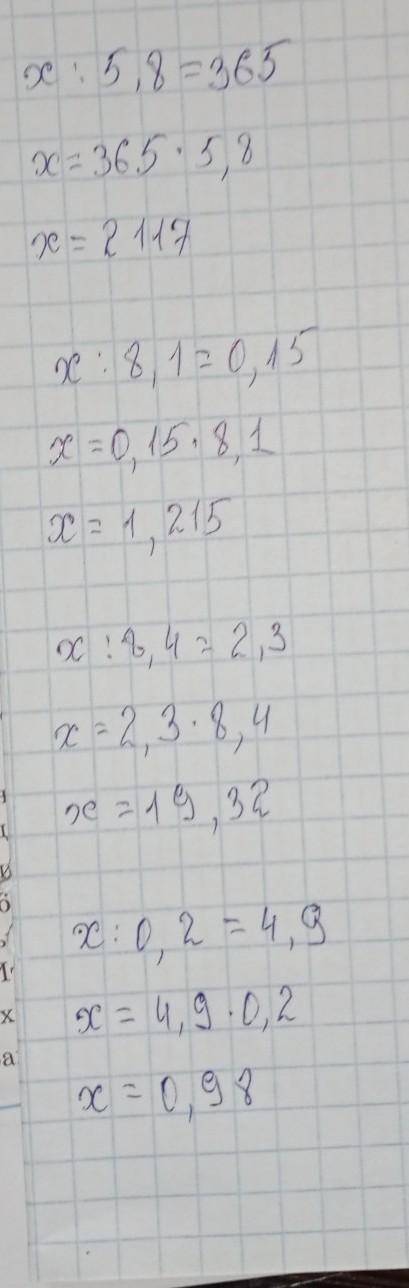 x : 5,8 = 365
x = 365 · 5,8
x = 2117
x : 8,1 = 0,15
x = 0,15 · 8,1
x = 1,215
x : 8,4 = 2,3
x = 2,3 · 8,4
x = 19,32
x : 0,2 = 4,9
x = 4,9 · 0,2
x = 0,98
х
а